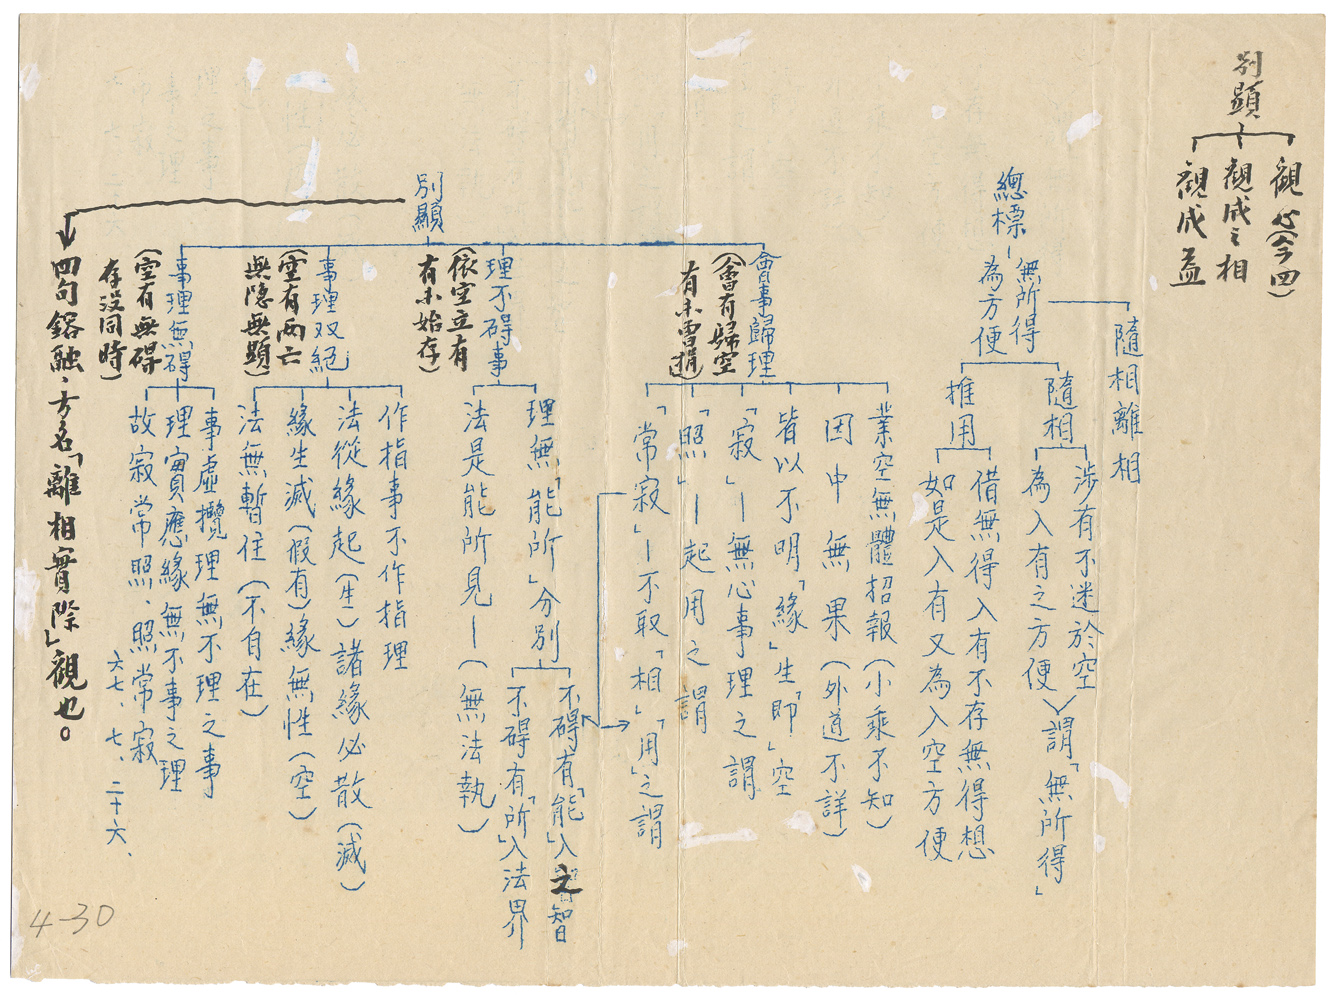 別顯
觀心(今四)
觀成之相
觀成益
隨相離相
總標—無所得為方便
隨相
涉有不迷於空
為入有之方便
謂「無所得」
推用
借無得入有不存無得想
如是入有又為入空方便
別顯
會事歸理
(會有歸空
有未嘗損)
業空無體招報(小乘不知)
因中無果(外道不詳)
皆以不明「緣」生「即」空
「寂」—無心事理之謂
「照」—起用之謂
「常寂」—不取「相」「用」之謂
理不碍事
(依空立有
有未始存)
理無「能所」分別
不碍有「能」入之智
不碍有「所」入法界
法是能所見—(無法執)
事理双絕
(空有兩亡
無隱無顯)
作指事不作指理
法從緣起(生)諸緣必散(滅)
緣生滅(假有)緣無性(空)
法無暫住(不自在)
事理無碍
(空有無碍
存沒同時)
事虛攬理無不理之事
理實應緣無不事之理
故寂常照、照常寂
六七、七、二十六、
四句鎔融、方名「離相實際」觀也。
4-30